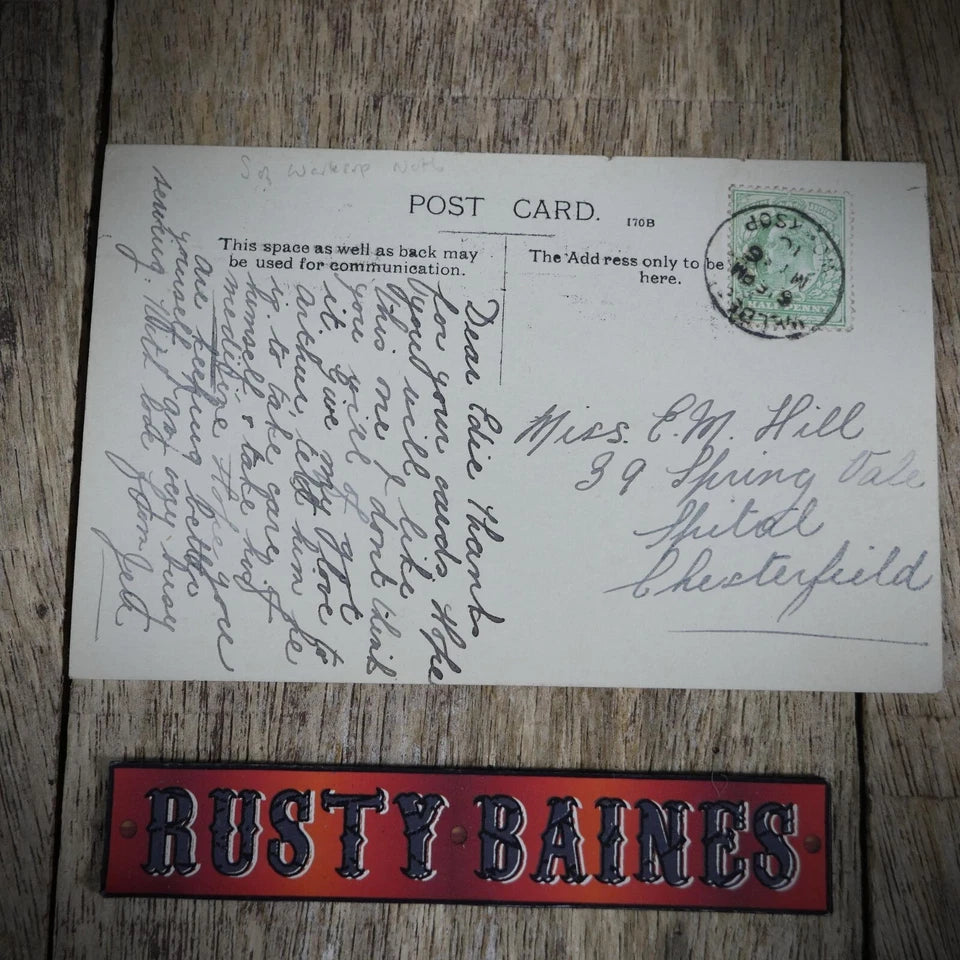 Worksop Notts
POST CARD.
170B
This space as well as back may
be used for communication.
The Address only to be
here.
HALFPENNY
Dear Edie Thanks
for your cards Hope
you will like
this one I dont think
you will of got
it. Give my love to
Arthur, tell him he
is to take care of
himself & take his
medicine Hope you
are keeping better
yourself got very busy
sewing. With love from
Miss. E. M. Hill
39 Spring Vale
Spital
Chesterfield
RUSTY BAINES